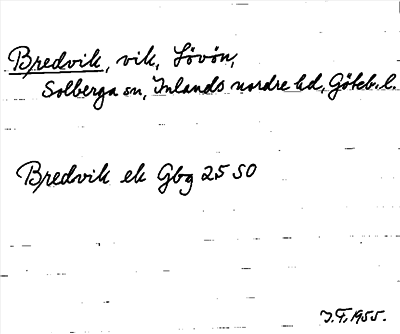 Bredvik, vik, Lövön,
Solberga sn, Inlands nordre hd, Göteb. l.
Bredvik ek Gbg 25 SO
J.F. 1955.